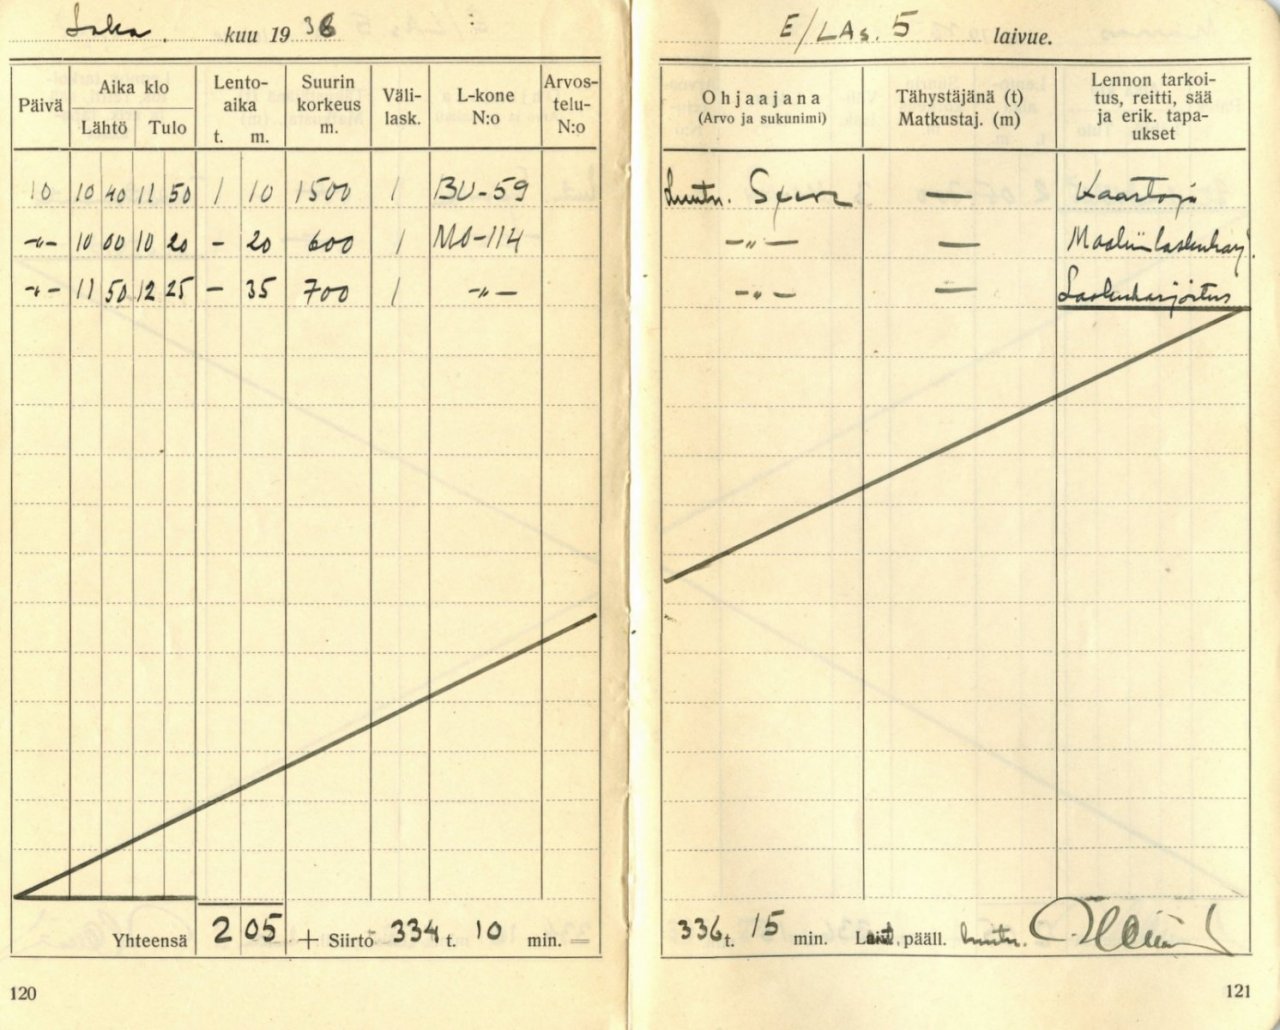 Loka. kuu 1938
E/LAs. 5 laivue.
Päivä Aika klo Lähtö Tulo Lento-aika t. m. Suurin korkeus m. Väli-lask. L-kone N:o Arvos-telu-N:o
Ohjaajana (Arvo ja sukunimi) Tähystäjänä (t) Matkustaj. (m) Lennon tarkoi-tus, reitti, sää ja erik. tapa-ukset
10 10 40 11 50 1 10 1500 1 BU-59 luutn. — Kaartoja
-"- 10 00 10 20 - 20 600 1 MO-114 -"- —
-"- 11 50 12 25 - 35 700 1 -"- -"- — Laskuharjoitus
Yhteensä 2 05 + Siirto 334 t. 10 min. =
336 t. 15 min. pääll. luutn.
120
121